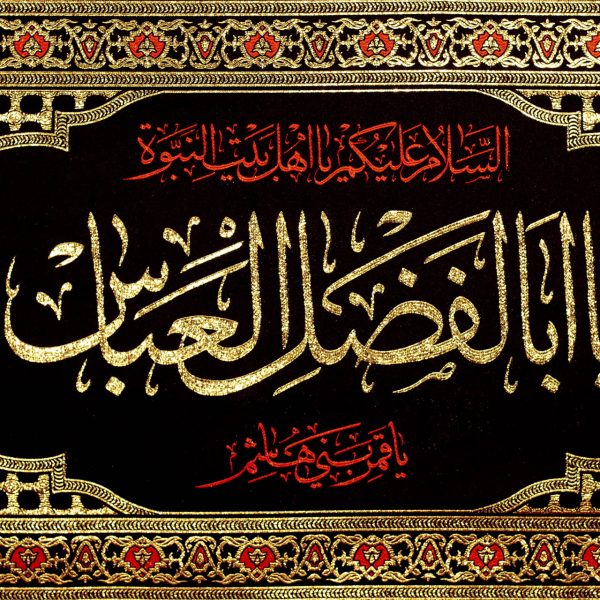 السَّلامُ عَلَيْكُمْ يا اَهْلَ بَيْتِ النَّبُوَّةِ
يا اَبَا الْفَضْلِ الْعَبَّاس
يا قَمَرَ بَنِي هاشِمٍ